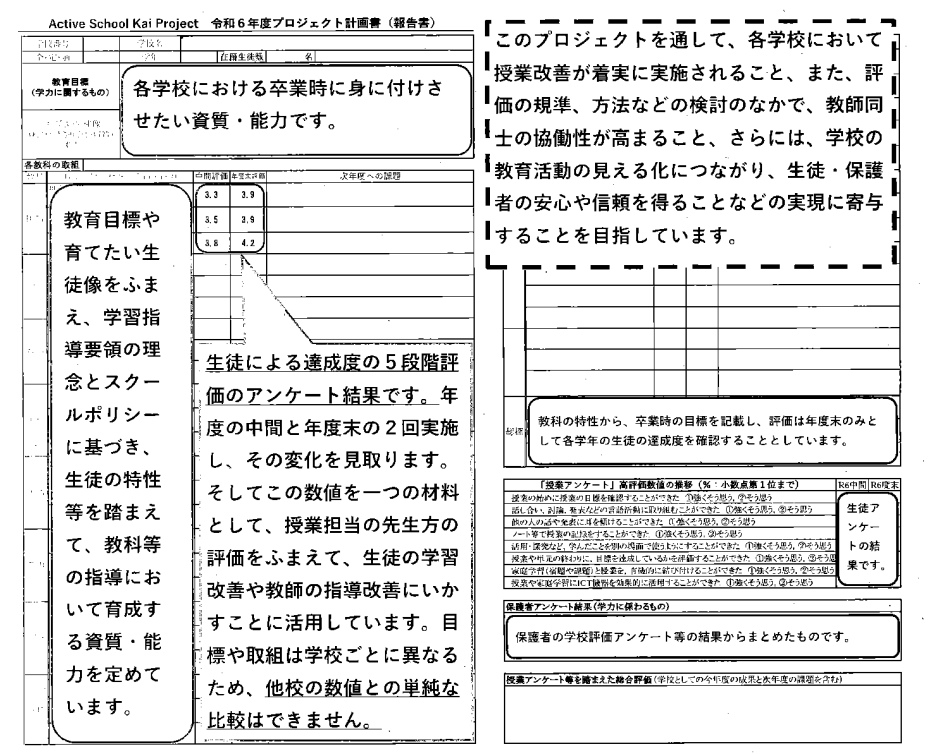 Active School Kai Project 令和６年度プロジェクト計画書（報告書）
学校番号
学校名
在籍生徒数
名
教育目標
（学力に関するもの）
各学校における卒業時に身に付けさ
せたい資質・能力です。
各教科の取組
中間評価
年度末評価
次年度への課題
3.3 3.9
3.5 3.9
3.8 4.2
教育目標や
育てたい生
徒像をふま
え、学習指
導要領の理
念とスクー
ルポリシー
に基づき、
生徒の特性
等を踏まえ
て、教科等
の指導にお
いて育成す
る資質・能
力を定めて
います。
生徒による達成度の５段階評
価のアンケート結果です。年
度の中間と年度末の２回実施
し、その変化を見取ります。
そしてこの数値を一つの材料
として、授業担当の先生方の
評価をふまえて、生徒の学習
改善や教師の指導改善にいか
すことに活用しています。目
標や取組は学校ごとに異なる
ため、他校の数値との単純な
比較はできません。
このプロジェクトを通して、各学校において
授業改善が着実に実施されること、また、評
価の規準、方法などの検討のなかで、教師同
士の協働性が高まること、さらには、学校の
教育活動の見える化につながり、生徒・保護
者の安心や信頼を得ることなどの実現に寄与
することを目指しています。
教科の特性から、卒業時の目標を記載し、評価は年度末のみと
して各学年の生徒の達成度を確認することとしています。
「授業アンケート」高評価数値の推移（％：小数点第１位まで）
R6中間
R6年度末
授業の始めに授業の目標を確認することができた ①強くそう思う，②そう思う
話し合い、討論、発表などの言語活動に取り組むことができた ①強くそう思う，②そう思う
他の人の話や発表に耳を傾けることができた ①強くそう思う，②そう思う
ノート等で授業の記録をすることができた ①強くそう思う，②そう思う
活用・探究など、学んだことを別の場面で使うようにすることができた ①強くそう思う，②そう思う
授業や単元の終わりに、目標を達成しているかを評価することができた ①強くそう思う，②そう思う
家庭学習（宿題や課題）と授業を、有機的に結び付けることができた ①強くそう思う，②そう思う
授業や家庭学習にICT機器を効果的に活用することができた ①強くそう思う，②そう思う
生徒ア
ンケー
トの結
果です。
保護者アンケート結果（学力に係わるもの）
保護者の学校評価アンケート等の結果からまとめたものです。
授業アンケート等を踏まえた総合評価（学校としての今年度の成果と次年度の課題を含む）